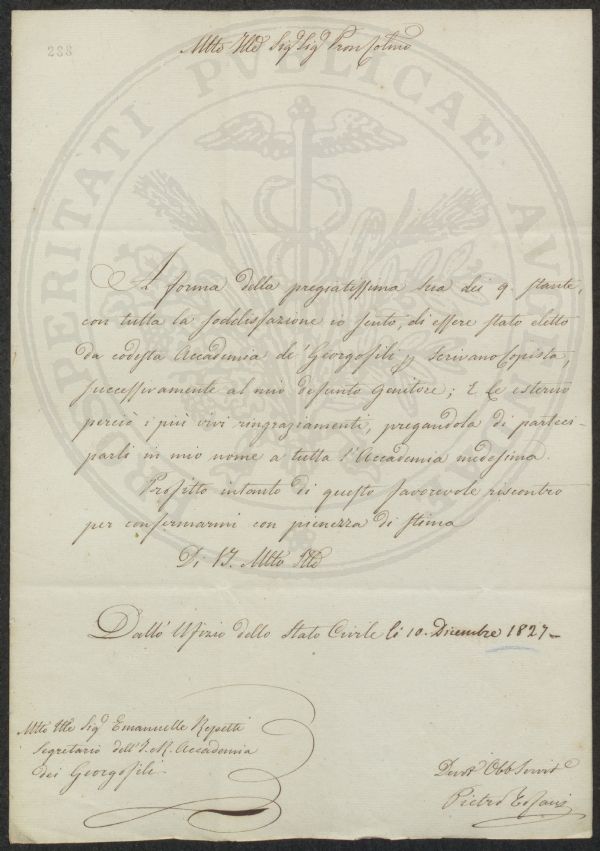 288
Mto Illd Sigr Sigr Pron Colmo
PERITATI PUBLICAE
A forma della pregiatissima sua dei 9. stante,
con tutta la soddisfazione io sento, di essere stato eletto
da codesta Accademia de' Georgofili p Scrivano Copista,
successivamente al mio defunto Genitore; E Le esterno
perciò i più vivi ringraziamenti, pregandola di parteci-
parli in mio nome a tutta l'Accademia medesima.
Profitto intanto di questo favorevole riscontro
per confermarmi con pienezza di stima
Di V.S. Mto Illd
Dall' Ufizio dello Stato Civile li 10. Dicembre 1827-
Mto Ille Sigr Emanuelle Repetti
Segretario dell' I. R. Accademia
dei Georgofili
Devot Obb Servite
Pietro